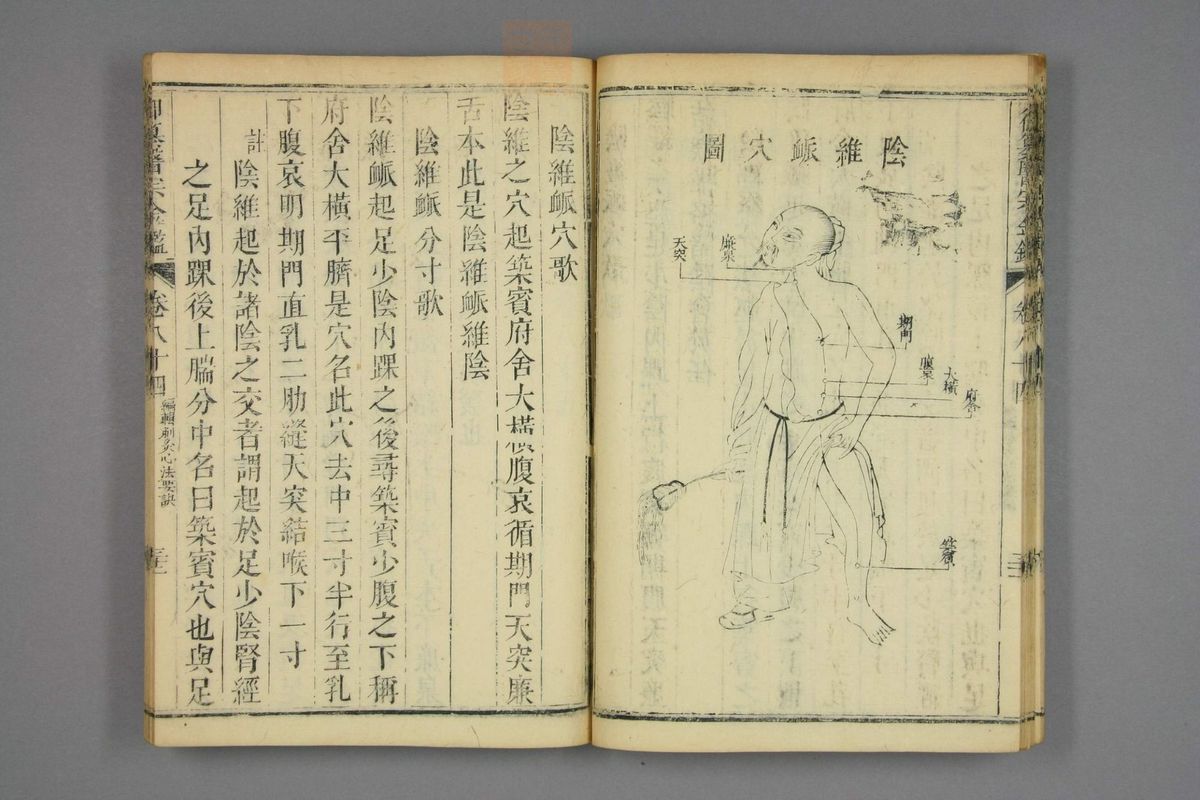 陰維䘑穴圖
廉泉
天突
期門
大橫
府舍
築賓
陰維䘑穴歌
陰維之穴起築賓府舍大橫腹哀循期門天突廉
舌本此是陰維䘑維陰
陰維䘑分寸歌
陰維䘑起足少陰內踝之後尋築賓少腹之下稱
府舍大橫平臍是穴名此穴去中三寸半行至乳
下腹哀明期門直乳二肋縫天突結喉下一寸
註陰維起於諸陰之交者謂起於足少陰腎經
之足內踝後上腨分中名曰築賓穴也與足
卷八十四
編輯刺灸心法要訣